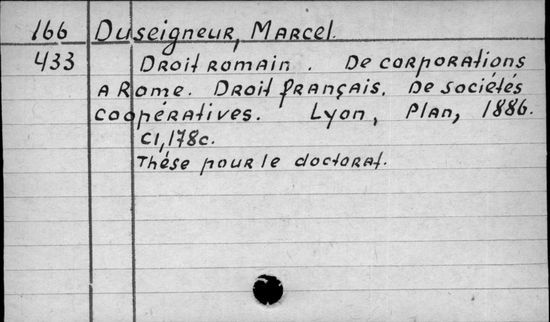 166 Duseigneur, Marcel.
433 Droit romain. De corporations
a Rome. Droit français. De sociétés
coopératives. Lyon, Plan, 1886.
CI,178c.
Thése pour le doctorat.